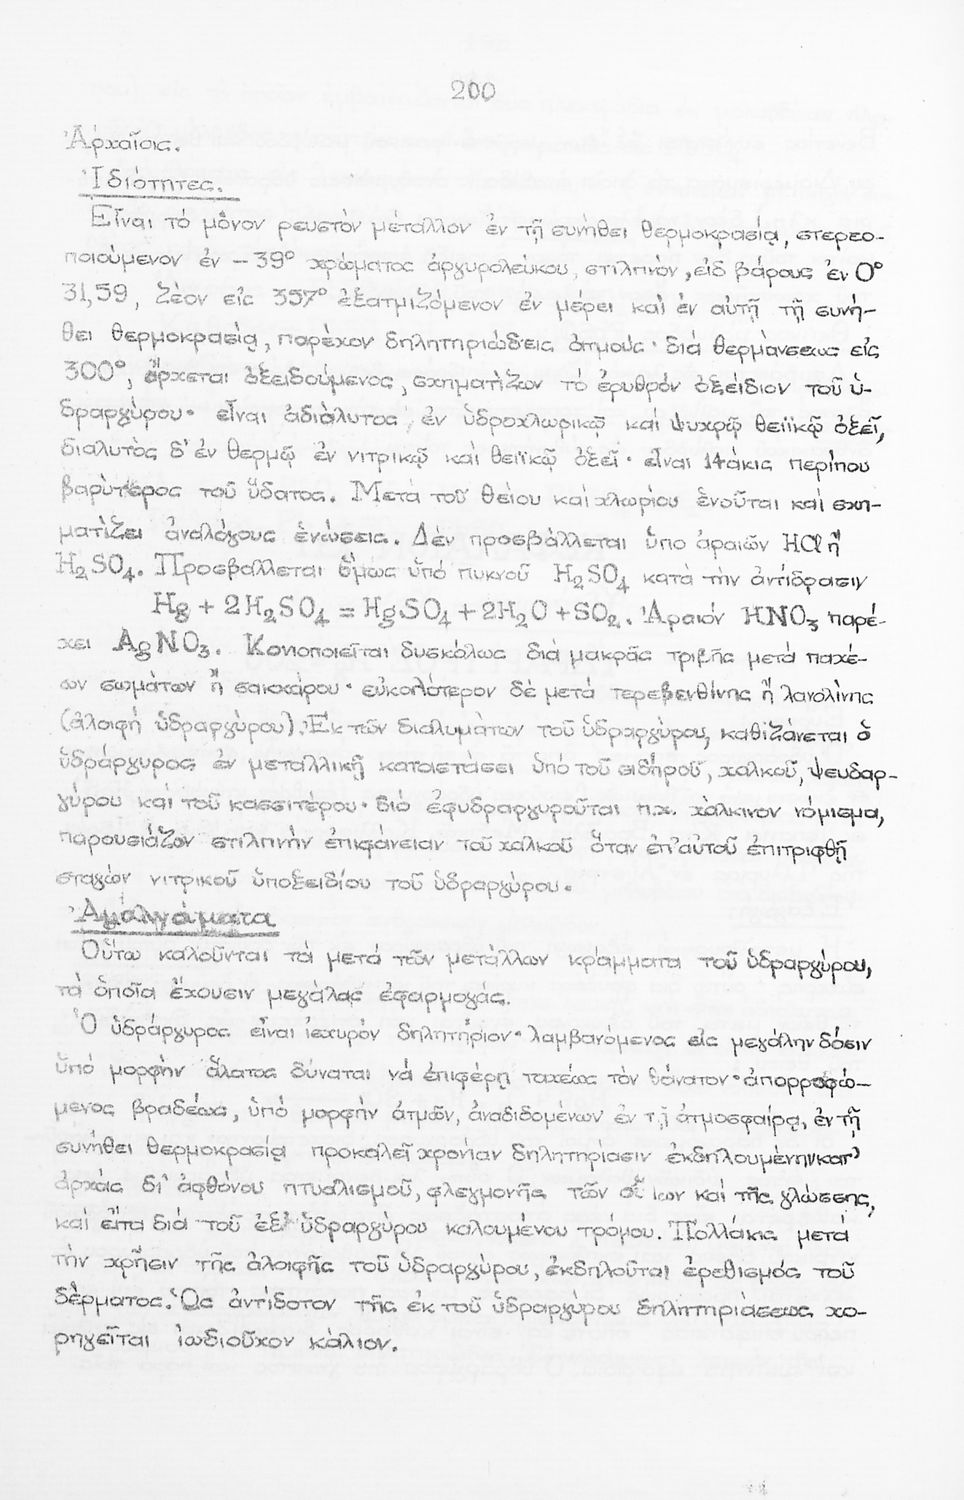 200
Ἀρχαῖοις.
Ἰδιότητες.
Εἶναι τό μόνον ρευστόν μέταλλον ἐν τῇ συνήθει θερμοκρασίᾳ, στερεο-
ποιούμενον ἐν – 39° χρώματος ἀργυρολεύκου, στιλπνόν, εἰδ βάρους ἐν 0°
31,59, ζέον εἰς 357° ἐξατμιζόμενον ἐν μέρει καί ἐν αὐτῇ τῇ συνή-
θει θερμοκρασίᾳ, παρέχον δηλητηριώδεις ἀτμούς· διά θερμάνσεως εἰς
300°, ἄρχεται ὀξειδούμενος, σχηματίζων τό ἐρυθρόν ὀξείδιον τοῦ ὑ-
δραργύρου· εἶναι ἀδιάλυτος ἐν ὑδροχλωρικῷ καί ψυχρῷ θειϊκῷ ὀξεῖ,
διαλυτός δ' ἐν θερμῷ ἐν νιτρικῷ καί θειϊκῷ ὀξεῖ· εἶναι 14άκις περίπου
βαρύτερος τοῦ ὕδατος. Μετά τοῦ θείου καί χλωρίου ἑνοῦται καί σχη-
ματίζει ἀναλόγους ἑνώσεις. Δέν προσβάλλεται ὑπο ἀραιῶν HCl ἤ
H₂SO₄. Προσβάλλεται ὅμως ὑπό πυκνοῦ H₂SO₄ κατά τήν ἀντίδρασιν
Hg + 2H₂SO₄ = HgSO₄ + 2H₂O + SO₂. Ἀραιόν HNO₃ παρέ-
χει AgNO₃. Κονιοποιεῖται δυσκόλως διά μακρᾶς τριβῆς μετά παχέ-
ων σωμάτων ἤ σακχάρου· εὐκολότερον δέ μετά τερεβενθίνης ἤ λανολίνης
(ἀλοιφή ὑδραργύρου). Ἐκ τῶν διαλυμάτων τοῦ ὑδραργύρου, καθιζάνεται ὁ
ὑδράργυρος ἐν μεταλλικῇ καταστάσει ὑπό τοῦ σιδήρου, χαλκοῦ, ψευδαρ-
γύρου καί τοῦ κασσιτέρου· διό ἐφυδραργυροῦται π.χ. χάλκινον νόμισμα,
παρουσιάζον στιλπνήν ἐπιφάνειαν τοῦ χαλκοῦ ὅταν ἐπ' αὐτοῦ ἐπιτριφθῇ
σταγών νιτρικοῦ ὑποξειδίου τοῦ ὑδραργύρου.
Ἀμαλγάματα
Οὕτω καλοῦνται τά μετά τῶν μετάλλων κράμματα τοῦ ὑδραργύρου,
τά ὁποῖα ἔχουσιν μεγάλας ἐφαρμογάς.
Ὁ ὑδράργυρος εἶναι ἰσχυρόν δηλητήριον· λαμβανόμενος εἰς μεγάλην δόσιν
ὑπό μορφήν ἅλατος δύναται νά ἐπιφέρῃ ταχέως τόν θάνατον· ἀπορροφώ-
μενος βραδέως, ὑπό μορφήν ἀτμῶν, ἀναδιδομένων ἐν τῇ ἀτμοσφαίρᾳ, ἐν τῇ
συνήθει θερμοκρασίᾳ προκαλεῖ χρονίαν δηλητηρίασιν ἐκδηλουμένην κατ'
ἀρχάς δι' ἀφθόνου πτυαλισμοῦ, φλεγμονῆς τῶν οὔλων καί τῆς γλώσσης,
καί εἶτα διά τοῦ ἐξ ὑδραργύρου καλουμένου τρόμου. Πολλάκις μετά
τήν χρῆσιν τῆς ἀλοιφῆς τοῦ ὑδραργύρου, ἐκδηλοῦται ἐρεθισμός τοῦ
δέρματος. Ὡς ἀντίδοτον τῆς ἐκ τοῦ ὑδραργύρου δηλητηριάσεως χο-
ρηγεῖται ἰωδιοῦχον κάλιον.